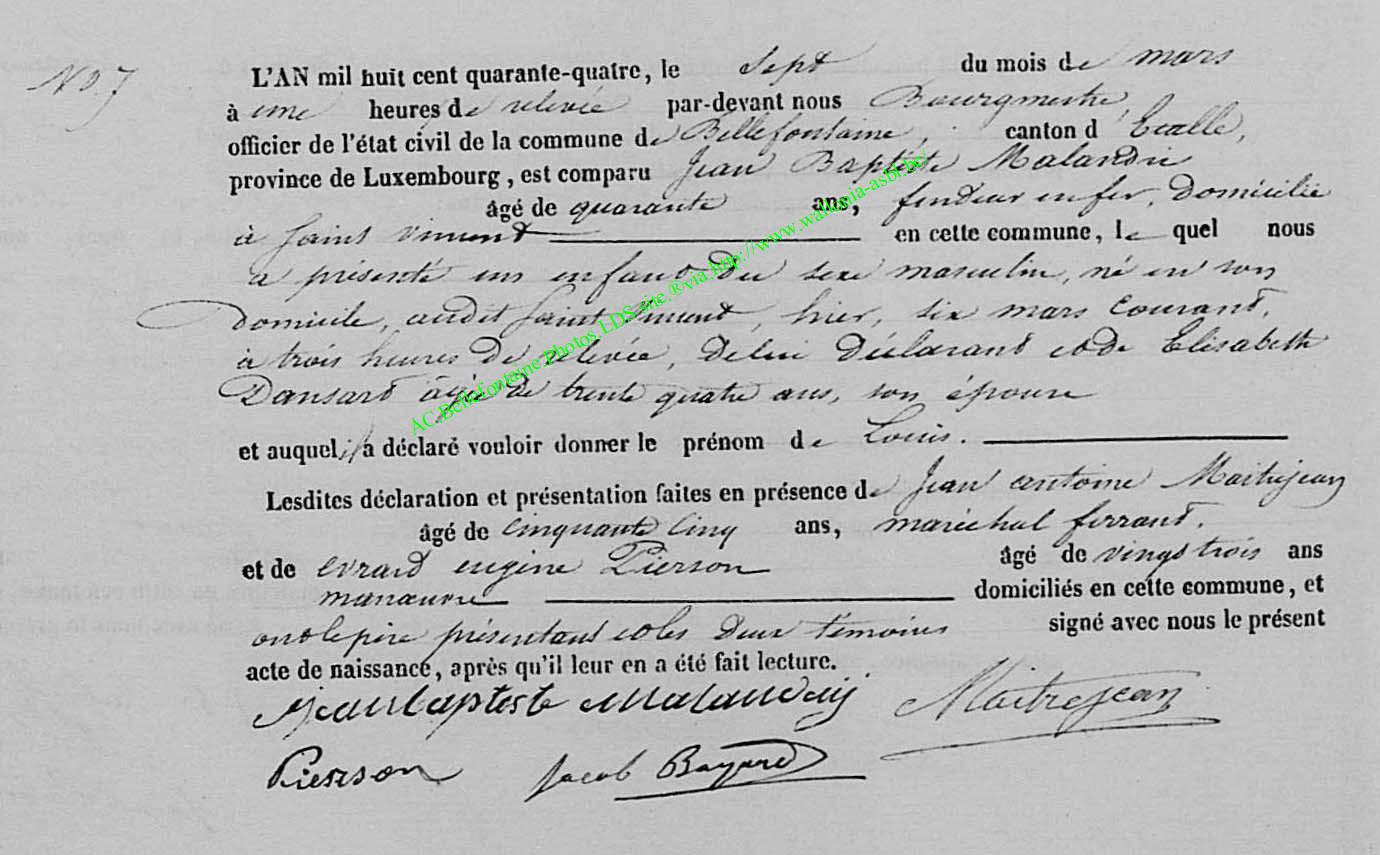 No 7
L'AN mil huit cent quarante-quatre, le Sept du mois de mars
à une heures de relevée par-devant nous Bourgmestre,
officier de l'état civil de la commune de Bellefontaine, canton d'Etalle,
province de Luxembourg, est comparu Jean Baptiste Malandrie
âgé de quarante ans, fendeur en fer, domicilié
à Saint Vincent en cette commune, le quel nous
a présenté un enfant du sexe masculin, né en son
domicile, audit Saint Vincent, hier, six mars courant,
à trois heures de relevée, de lui déclarant et de Elisabeth
Dansart âgée de trente quatre ans, son épouse
et auquel il a déclaré vouloir donner le prénom de Louis.
Lesdites déclaration et présentation faites en présence de Jean antoine Maitrejean
âgé de cinquante cinq ans, maréchal ferrant.
et de Evrard eugène Pierson âgé de vingt trois ans
manœuvre domiciliés en cette commune, et
ont le père présentant et les deux témoins signé avec nous le présent
acte de naissance, après qu'il leur en a été fait lecture.
Jean baptiste Maitrejean
Pierson Jacob Bayard
AC.Bellefontaine.Photos.LDS.site.®via.http://www.wallonia-asbl.be/